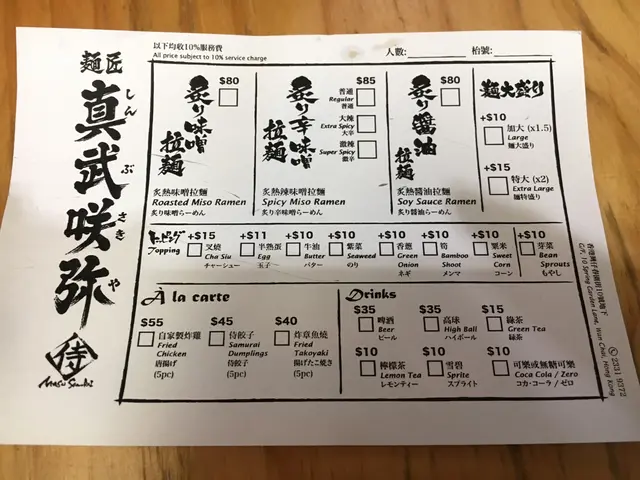 以下均收10%服務費
All price subject to 10% service charge
人數:
枱號:
麵匠
真武咲弥
しん ぶ さき や
侍
$80
炙り味噌
拉麵
炙熟味噌拉麵
Roasted Miso Ramen
炙り味噌らーめん
$85
炙り辛味噌
拉麵
普通
Regular
普通
大辣
Extra Spicy
大辛
激辣
Super Spicy
激辛
炙熟辣味噌拉麵
Spicy Miso Ramen
炙り辛味噌らーめん
$80
炙り醬油
拉麵
炙熟醬油拉麵
Soy Sauce Ramen
炙り醬油らーめん
麵大盛り
+$10
加大 (x1.5)
Large
麵大盛り
+$15
特大 (x2)
Extra Large
麵特盛り
トッピング
Topping
+$15
叉燒
Cha Siu
チャーシュー
+$11
半熟蛋
Egg
玉子
+$10
牛油
Butter
バター
+$10
紫菜
Seaweed
のり
+$10
香蔥
Green
Onion
ネギ
+$10
筍
Bamboo
Shoot
メンマ
+$10
粟米
Sweet
Corn
コーン
+$10
芽菜
Bean
Sprouts
もやし
À la carte
$55
自家製炸雞
Fried
Chicken
唐揚げ
(5pc)
$45
侍餃子
Samurai
Dumplings
侍餃子
(5pc)
$40
炸章魚燒
Fried
Takoyaki
揚げたこ焼き
(5pc)
Drinks
$35
啤酒
Beer
ビール
$35
高球
High Ball
ハイボール
$15
綠茶
Green Tea
緑茶
$10
檸檬茶
Lemon Tea
レモンティー
$10
雪碧
Sprite
スプライト
$10
可樂或無糖可樂
Coca Cola / Zero
コカ・コーラ / ゼロ
G/F, 10 Spring Garden Lane, Wan Chai, Hong Kong
2531 9372